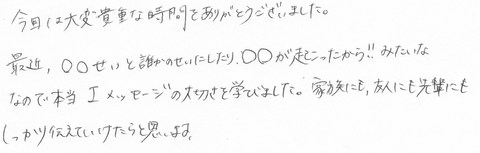 今回は大変貴重な時間をありがとうございました。
最近、○○せいと誰かのせいにしたり、○○が起こったから!!みたいな
なので本当 Iメッセージの大切さを学びました。家族にも、友人にも先輩にも
しっかり伝えていけたらと思います。